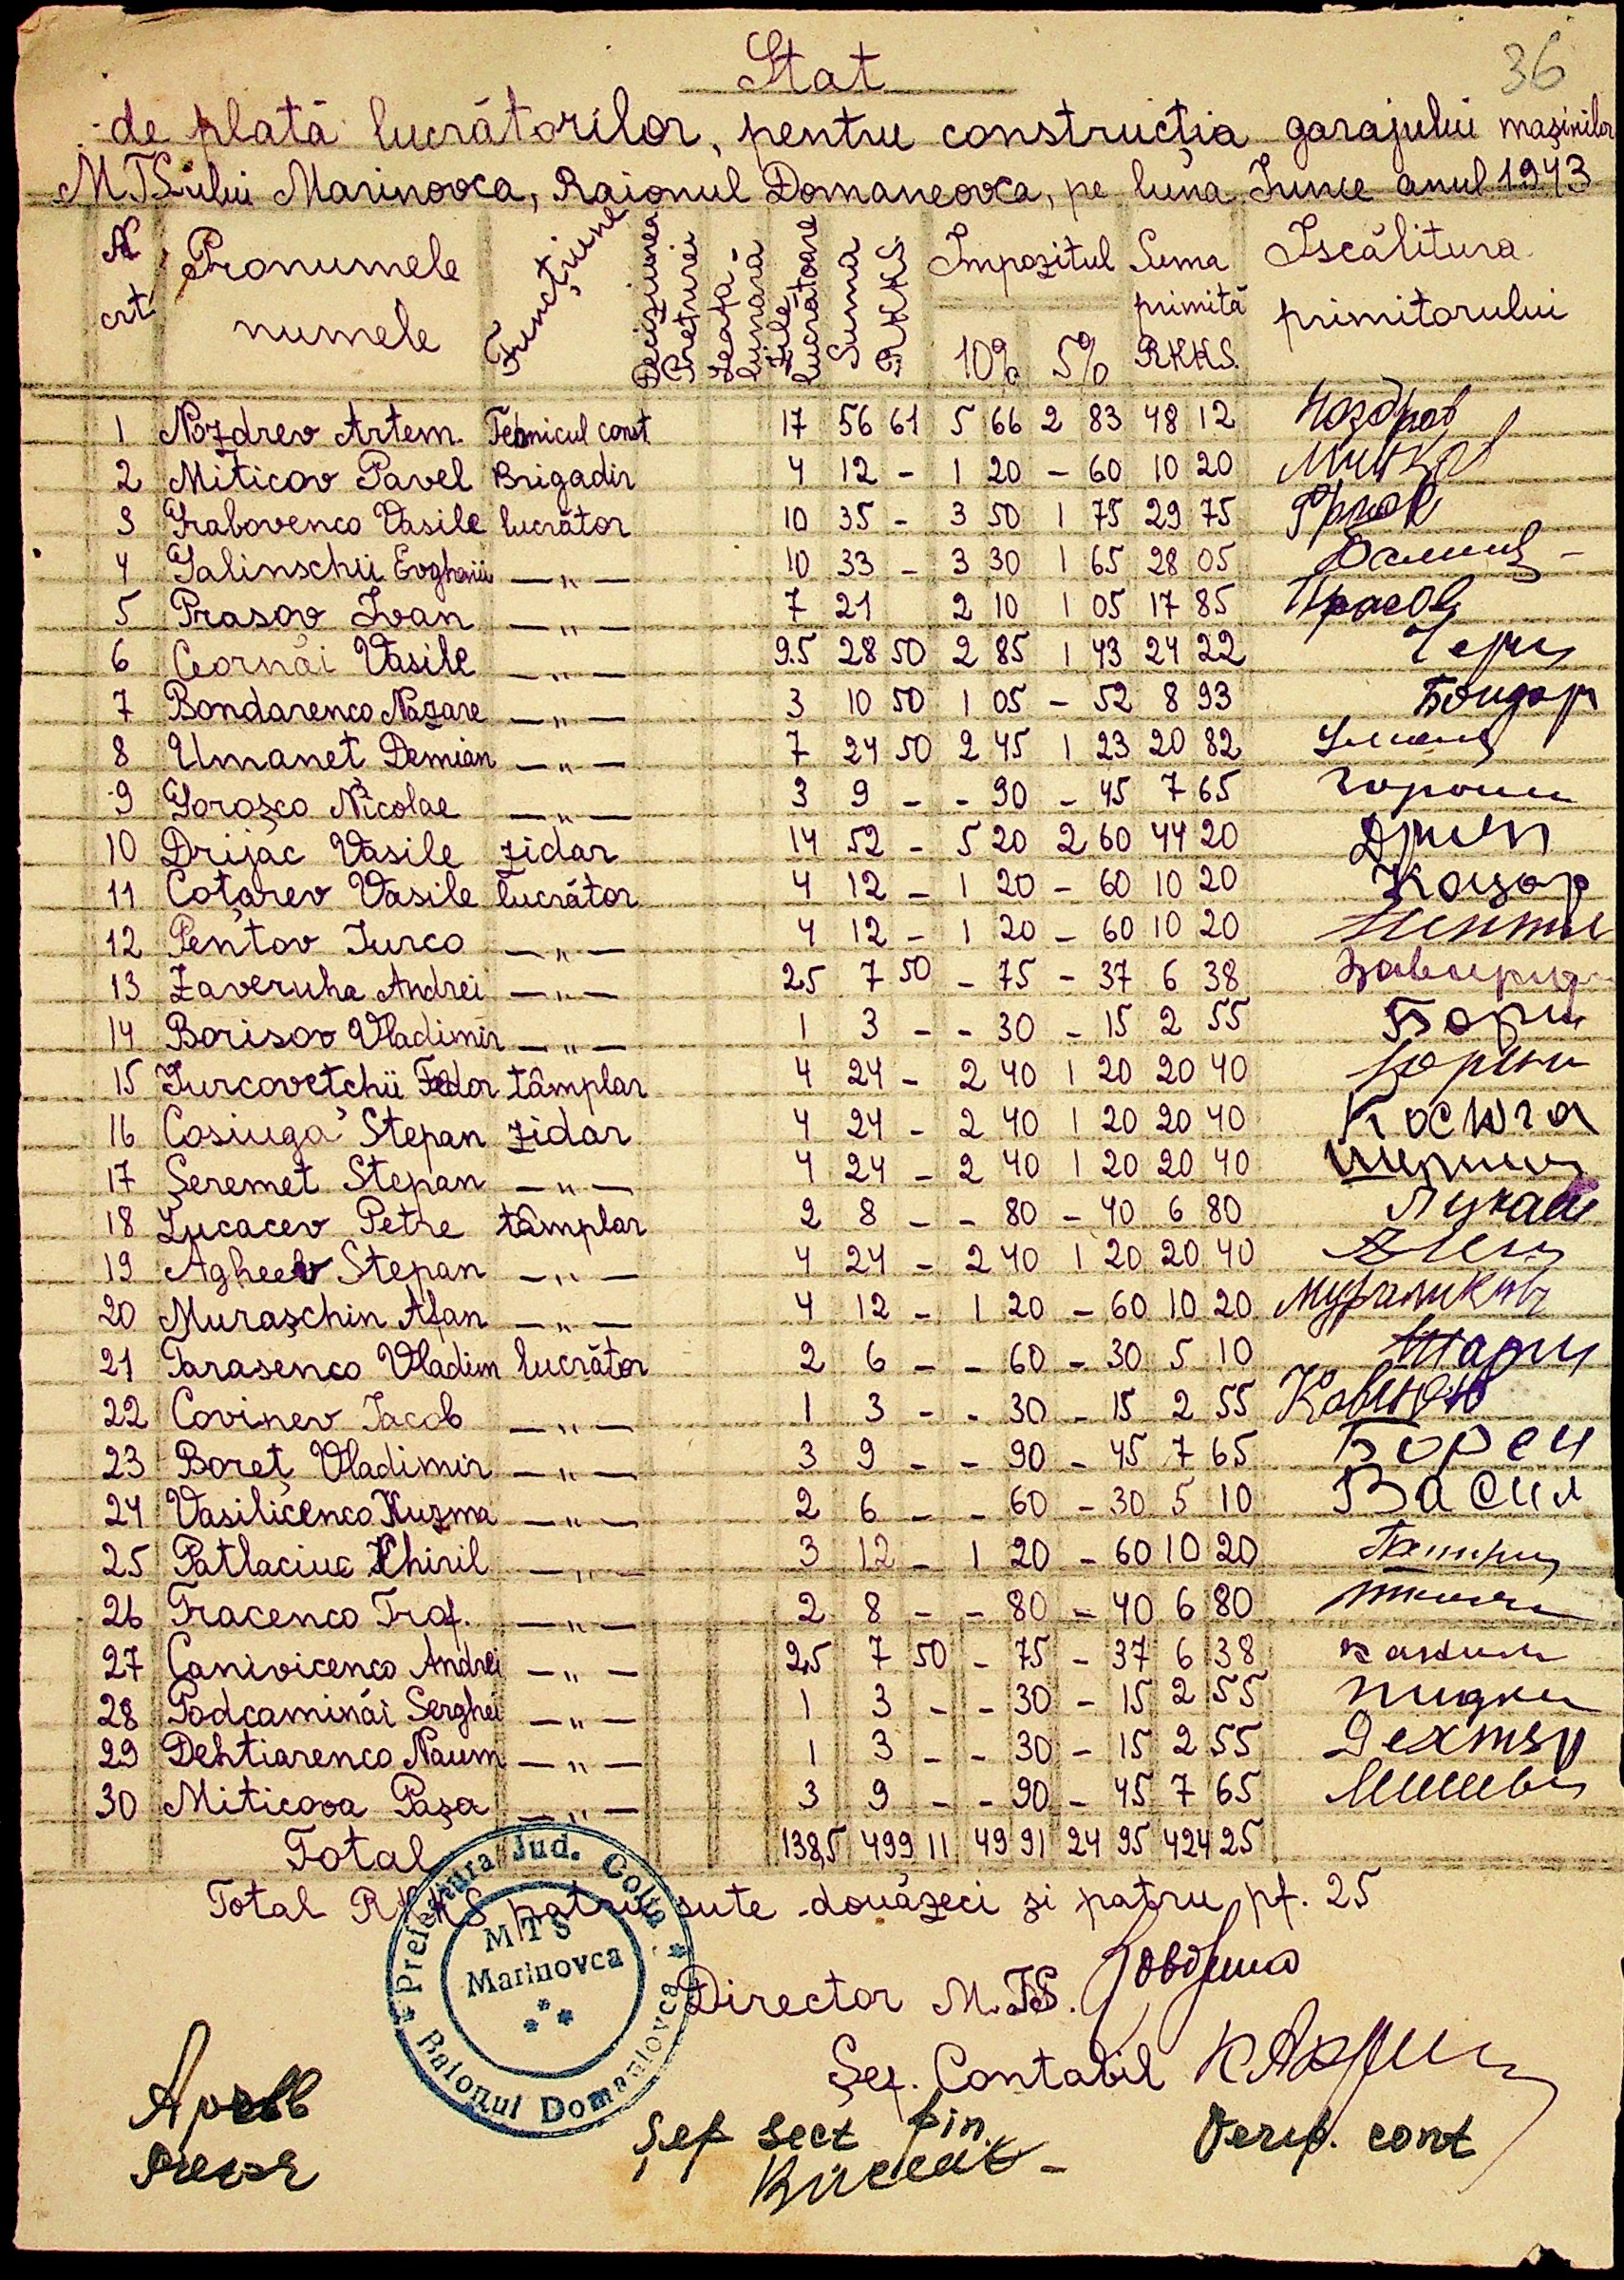 36
Stat
de plată lucrătorilor, pentru construcția garajului mașinilor
M.T.S.ului Marinovca, Raionul Domaneovca, pe luna Iunie anul 1943
N crt. Pronumele numele Funcțiunea Deciziunea Preturei Leafa lunara Zile lucrătoare Suma RKKS. Impozitul 10% 5% Suma primită RKKS. Iscălitura primitorului
1 Nozdrev Artem. Tehnicul const 17 56 61 5 66 2 83 48 12 Ноздрев
2 Miticov Pavel Brigadir 4 12 - 1 20 - 60 10 20
3 Grabovenco Vasile lucrător 10 35 - 3 50 1 75 29 75
4 Galinschii Evghenii — „ — 10 33 - 3 30 1 65 28 05
5 Prasov Ivan — „ — 7 21 2 10 1 05 17 85 Прасов
6 Ceornâi Vasile — „ — 9.5 28 50 2 85 1 43 24 22 Черн
7 Bondarenco Nazare — „ — 3 10 50 1 05 - 52 8 93 Бондар
8 Umaneț Demian — „ — 7 24 50 2 45 1 23 20 82
9 Goroșco Nicolae — „ — 3 9 - - 90 - 45 7 65 Горош
10 Drijac Vasile zidar 14 52 - 5 20 2 60 44 20
11 Coțarev Vasile lucrător 4 12 - 1 20 - 60 10 20 Коцар
12 Pentov Iurco — „ — 4 12 - 1 20 - 60 10 20
13 Zaveruha Andrei — „ — 2,5 7 50 - 75 - 37 6 38
14 Borisov Vladimir — „ — 1 3 - - 30 - 15 2 55 Бори
15 Iurcovetchii Fedor tâmplar 4 24 - 2 40 1 20 20 40
16 Cosiuga Stepan zidar 4 24 - 2 40 1 20 20 40 Косюга
17 Șeremet Stepan — „ — 4 24 - 2 40 1 20 20 40
18 Lucacev Petre tâmplar 2 8 - - 80 - 40 6 80 Лукаш
19 Agheev Stepan — „ — 4 24 - 2 40 1 20 20 40
20 Murașchin Afan — „ — 4 12 - 1 20 - 60 10 20
21 Tarasenco Vladim lucrător 2 6 - - 60 - 30 5 10
22 Covinev Iacob — „ — 1 3 - - 30 - 15 2 55
23 Boreț Vladimir — „ — 3 9 - - 90 - 45 7 65 Борец
24 Vasilicenco Kuzma — „ — 2 6 - - 60 - 30 5 10 Васил
25 Patlaciuc Chiril — „ — 3 12 - 1 20 - 60 10 20
26 Tracenco Trof. — „ — 2 8 - - 80 - 40 6 80
27 Canivicenco Andrei — „ — 2,5 7 50 - 75 - 37 6 38
28 Podcaminâi Serghei — „ — 1 3 - - 30 - 15 2 55
29 Dehtiarenco Naum — „ — 1 3 - - 30 - 15 2 55 Дехтяр
30 Miticova Pașa — „ — 3 9 - - 90 - 45 7 65
Total 138,5 499 11 49 91 24 95 424 25
Total RKKS patru sute douăzeci și patru pf. 25
Prefectura Jud. Golta
MTS
Marinovca
Raionul Domaniovca
Director M.T.S.
Șef. Contabil
Șef sect fin.
Verif. cont